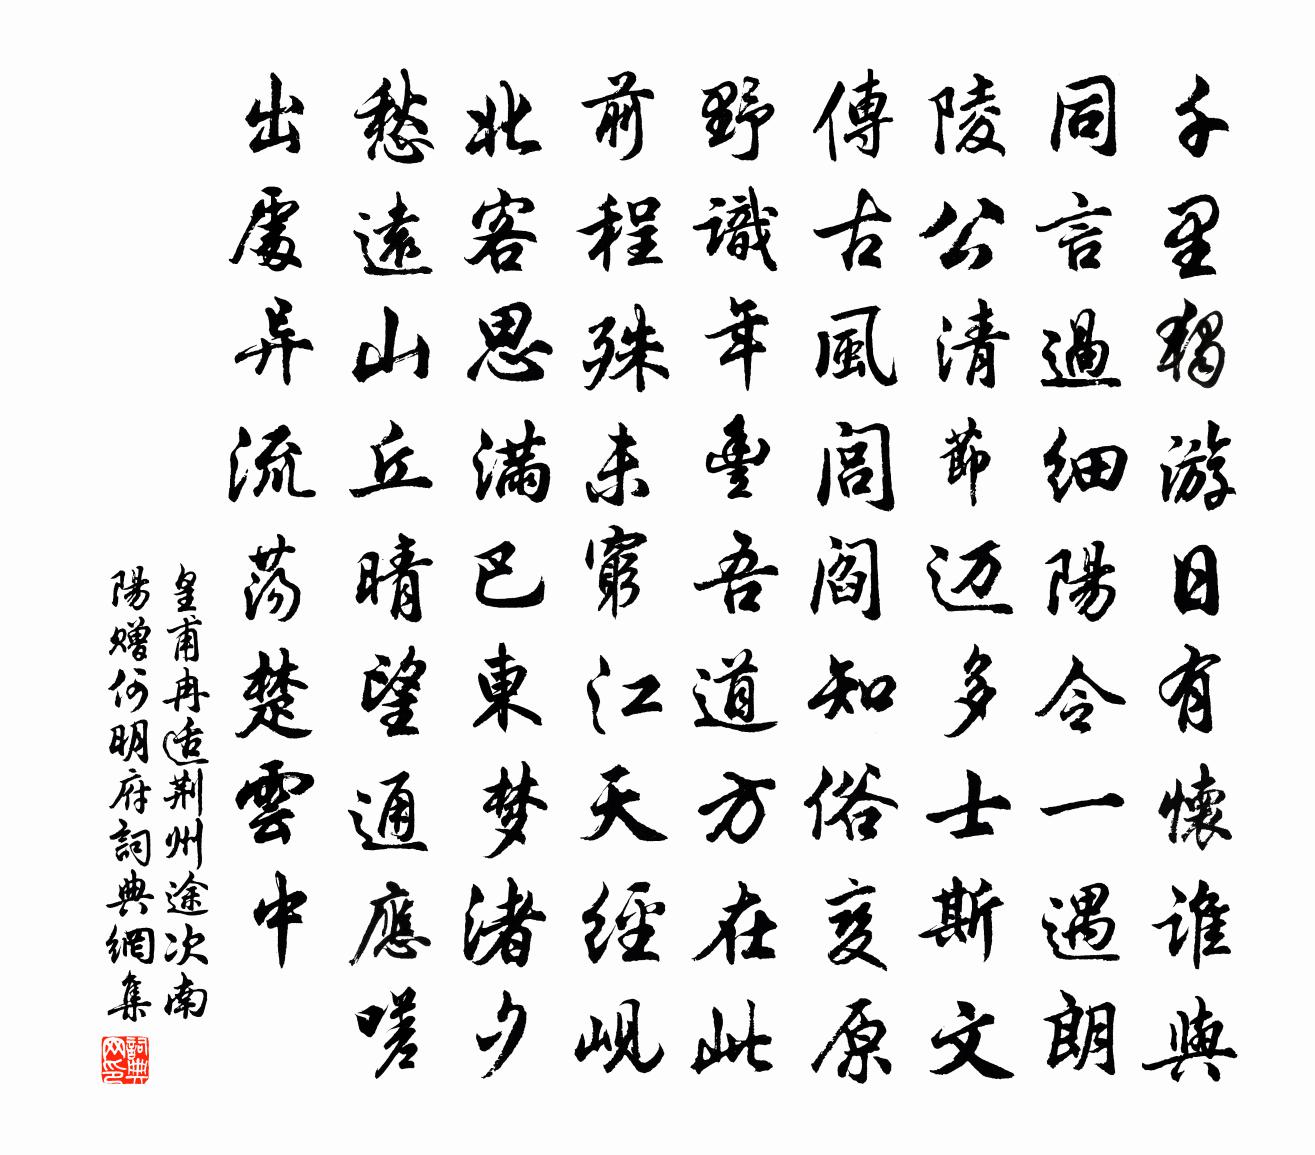 千里獨游日有懷誰與
同言過細陽令一遇朗
陵公清節迈多士斯文
傳古風閭閻知俗變原
野識年豊吾道方在此
前程殊未窮江天經峴
北客思滿巴東梦渚夕
愁遠山丘晴望通應嗟
出處异流荡楚雲中
皇甫冉适荆州途次南
陽赠何明府詞典網集
詞典网印